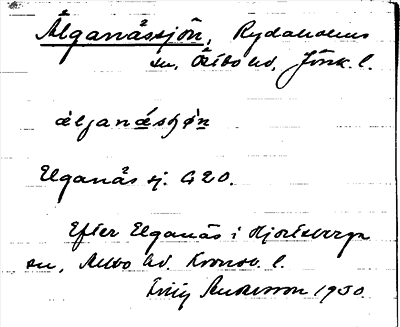 Älganässjön, Rydaholms
sn, Östbo hd, Jönk. l.
äljanäsjön
Elganäs sj. G20.
Efter Elganäs i Hjortsberga
sn, Allbo hd. Kronob. l.
Andersson 1930.